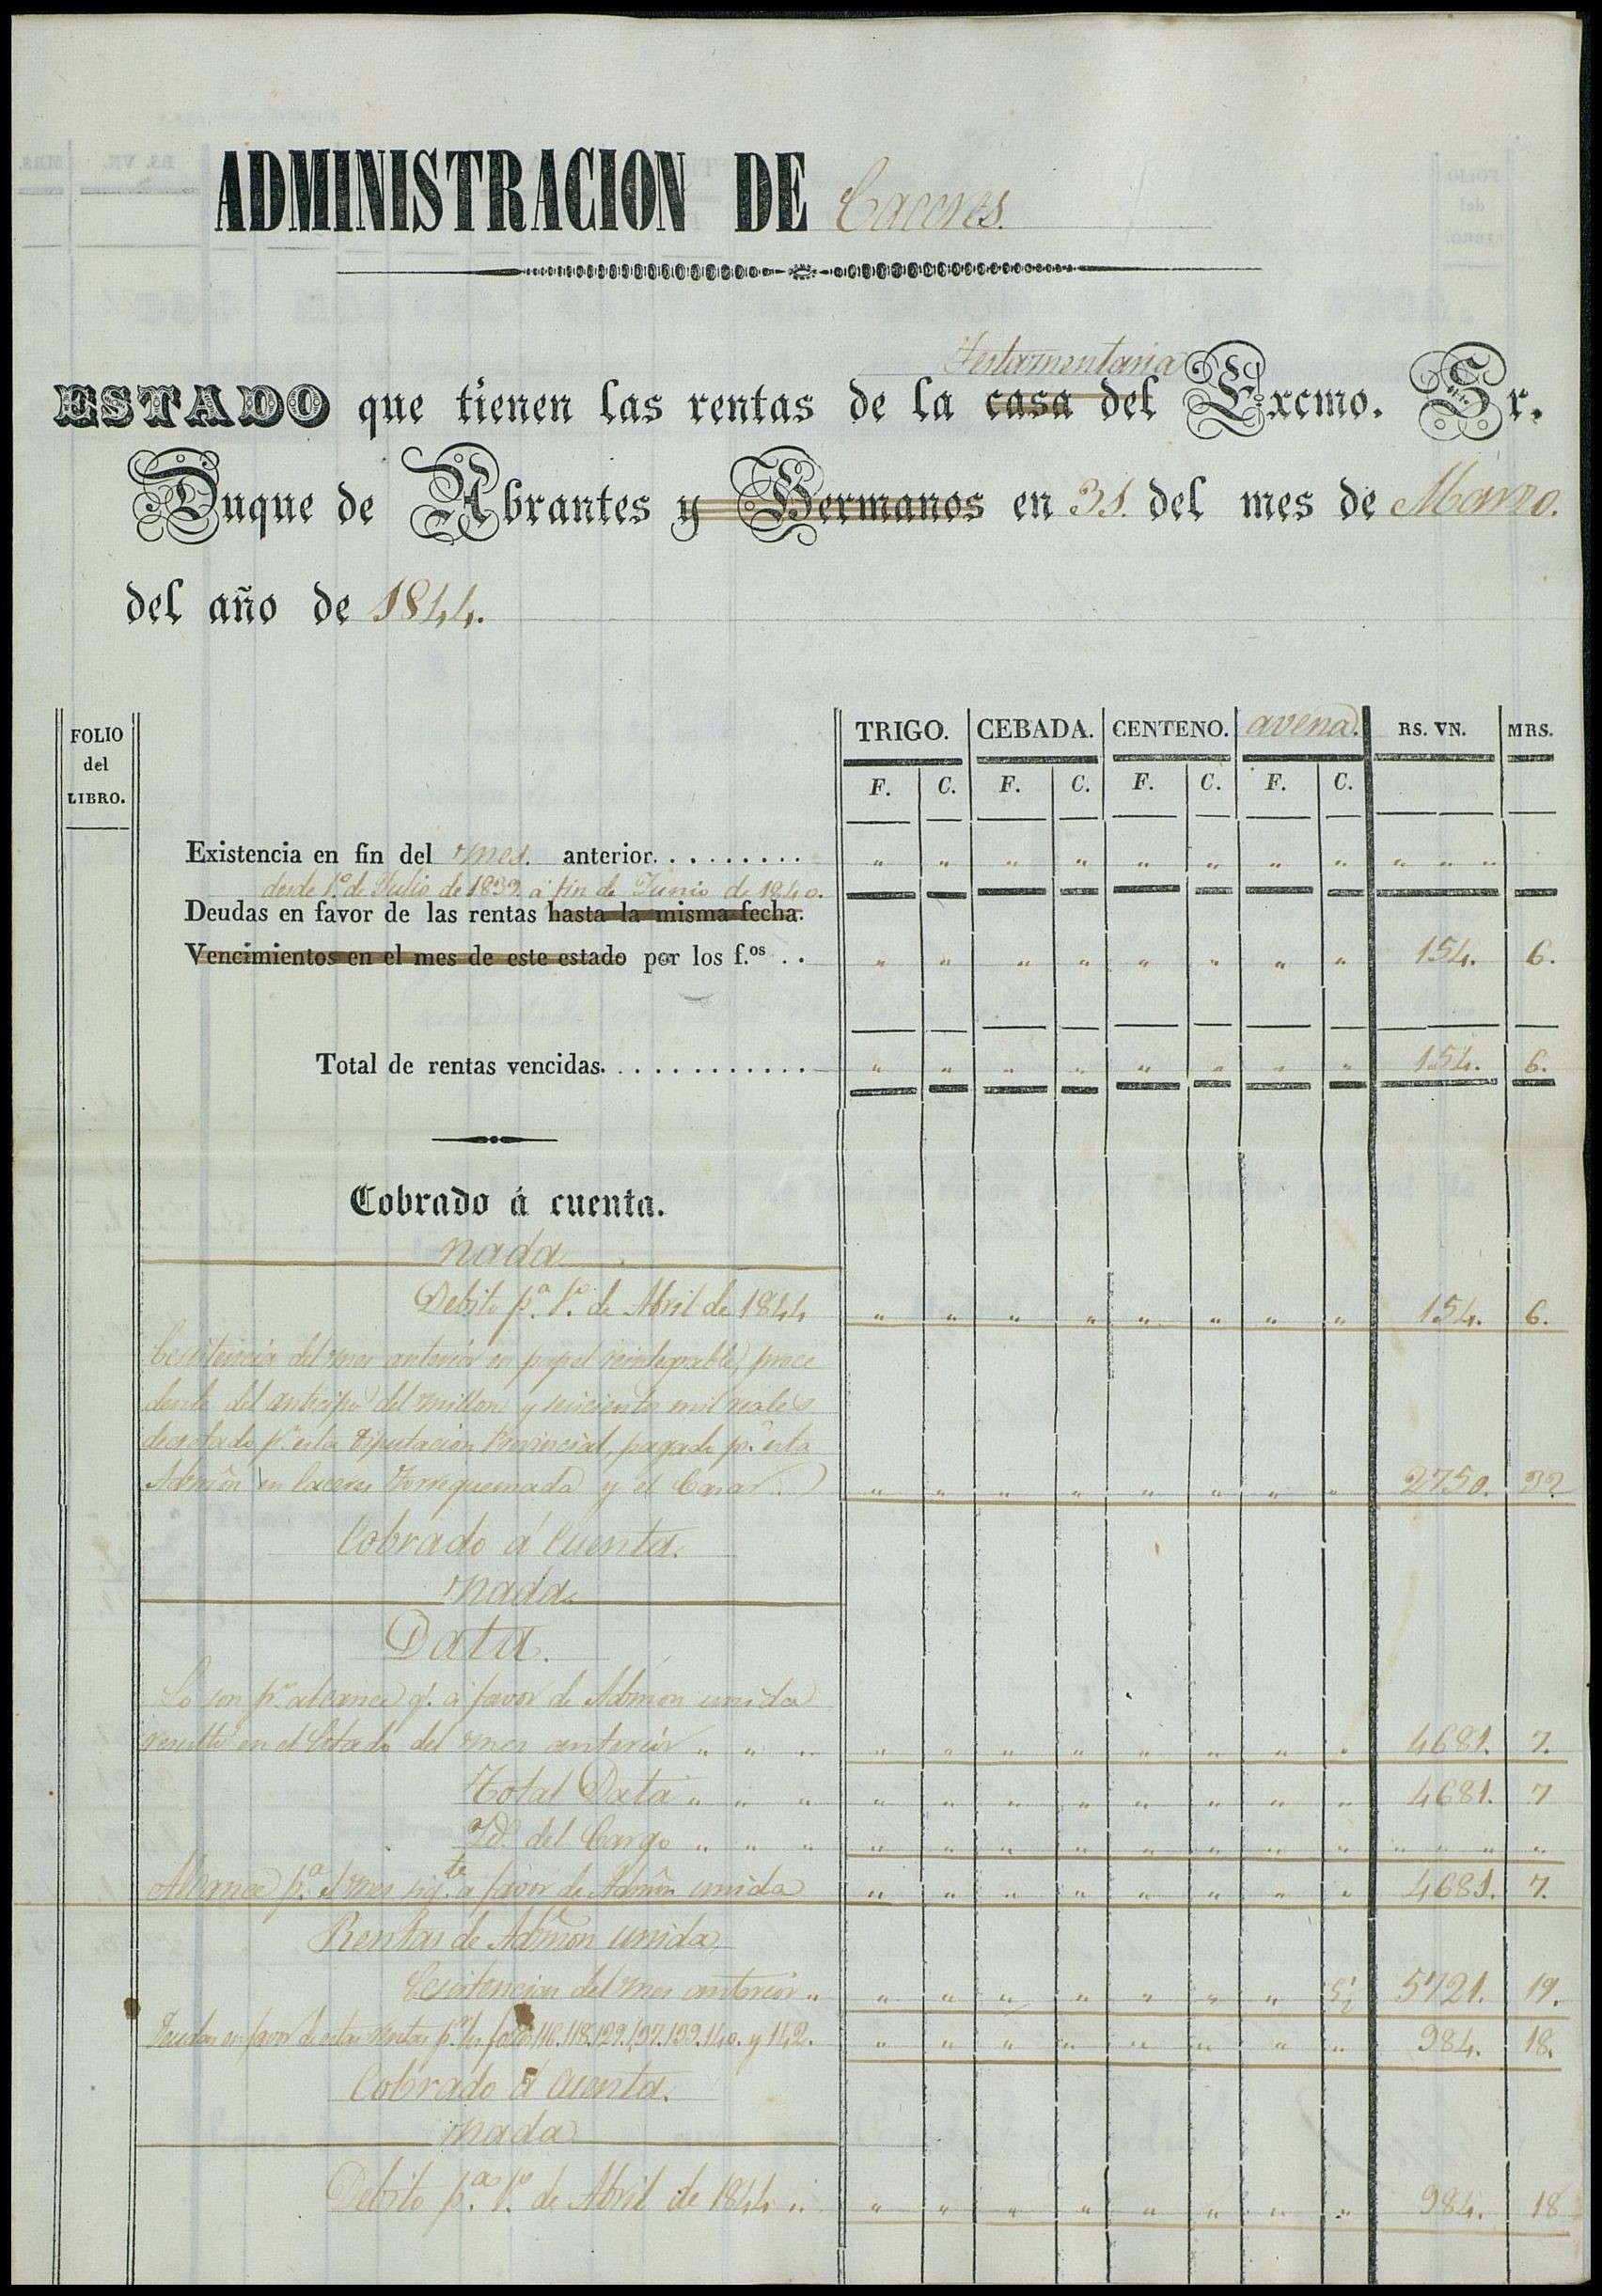 ADMINISTRACION DE Caceres.
Testamentaria
ESTADO que tienen las rentas de la casa del Excmo. Sr.
Duque de Abrantes y Hermanos en 31. del mes de Marzo.
del año de 1844.
FOLIO del LIBRO. TRIGO. CEBADA. CENTENO. avena. RS. VN. MRS.
F. C. F. C. F. C. F. C.
Existencia en fin del mes. anterior. . . . . . . . . " " " " " " " " " " "
desde 1.º de Julio de 1839 á fin de Junio de 1840.
Deudas en favor de las rentas hasta la misma fecha.
Vencimientos en el mes de este estado por los f.os . . " " " " " " " " 154. 6.
Total de rentas vencidas. . . . . . . . . . . . " " " " " " " " 154. 6.
Cobrado á cuenta.
nada
Debito p.ª 1.º de Abril de 1844 " " " " " " " " 154. 6.
Existencia del mes anterior en papel reintegrable, proce
dente del anticipo del millon y seiscientos mil reales
decretado p.r esta Diputacion Provincial, pagado p.r esta
Admōn en Caceres Torrequemada y el Casar. " " " " " " " " 2750. 32
Cobrado á Cuenta.
nada
Data.
Lo son p.r alcance q.e á favor de Admon unida
resultó en el Estado del mes anterior " " " " " " " " " " " 4681. 7.
Total Data " " " " " " " " " " " 4681. 7
Yd. del Cargo " " " " " " " " " " " " " " " "
Alcance p.ª el mes sig.te á favor de Admōn unida " " " " " " " " 4681. 7.
Rentas de Admōn unida
Existencias del mes anterior " " " " " " " " 5½ 5721. 19.
Deudas en favor de estas Rentas p.r los folios 116. 118. 129. 137. 139. 140. y 142. " " " " " " " " 984. 18.
Cobrado á Cuenta.
nada
Debito p.ª 1.º de Abril de 1844 " " " " " " " " " 984. 18